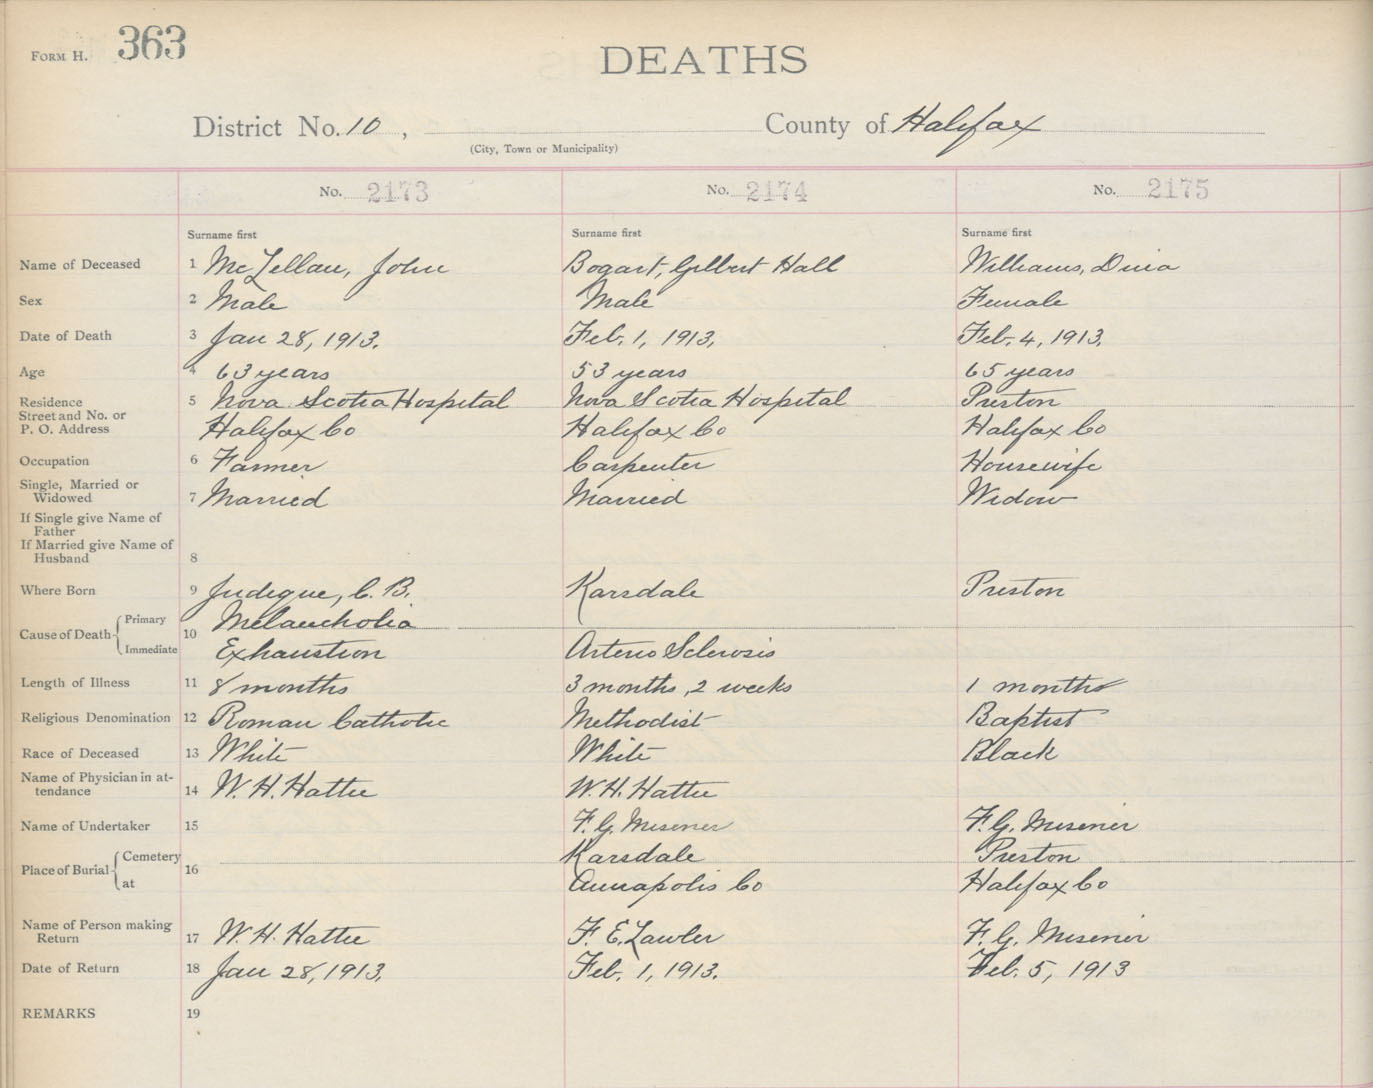 FORM H. 363
DEATHS
District No. 10 , County of Halifax
(City, Town or Municipality)
No. 2173 No. 2174 No. 2175
Surname first Surname first Surname first
Name of Deceased 1 McLellan, John Bogart, Gilbert Hall Williams, Dina
Sex 2 Male Male Female
Date of Death 3 Jan 28, 1913. Feb. 1, 1913. Feb. 4, 1913.
Age 4 63 years 53 years 65 years
Residence 5 Nova Scotia Hospital Nova Scotia Hospital Preston
Street and No. or
P. O. Address Halifax Co Halifax Co Halifax Co
Occupation 6 Farmer Carpenter Housewife
Single, Married or
Widowed 7 Married Married Widow
If Single give Name of
Father
If Married give Name of
Husband 8
Where Born 9 Judique, C. B. Karsdale Preston
Cause of Death Primary 10 Melancholia
Immediate Exhaustion Arterio Sclerosis
Length of Illness 11 8 months 3 months, 2 weeks 1 month
Religious Denomination 12 Roman Catholic Methodist Baptist
Race of Deceased 13 White White Black
Name of Physician in at-
tendance 14 W. H. Hattie W. H. Hattie
Name of Undertaker 15 F. G. Misener F. G. Misener
Place of Burial Cemetery 16 Karsdale Preston
at Annapolis Co Halifax Co
Name of Person making
Return 17 W. H. Hattie F. E. Lawler F. G. Misener
Date of Return 18 Jan 28, 1913. Feb. 1, 1913. Feb. 5, 1913
REMARKS 19